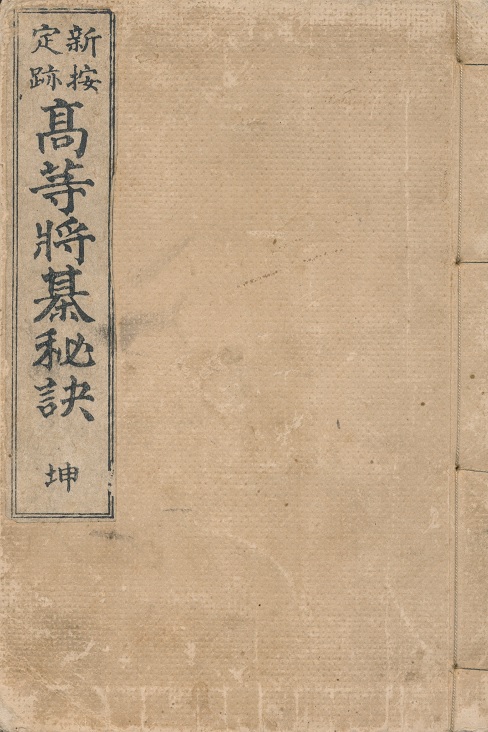 新按
定跡
高等將棊秘訣
坤